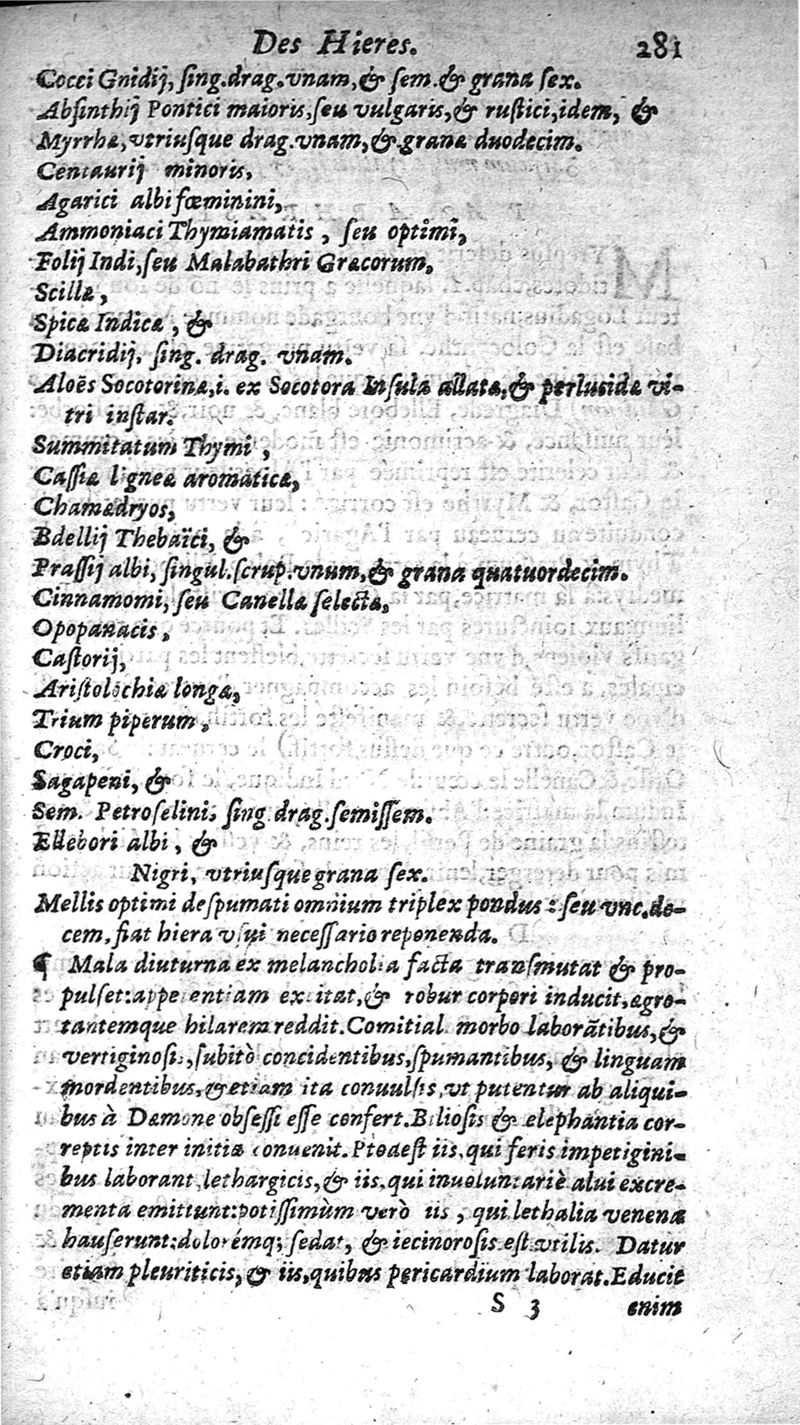 Des Hieres. 281
Cocci Gnidij, ſing.drag.vnam,& ſem.& grana ſex.
Abſinthij Pontici maioris,ſeu vulgaris,& ruſtici,idem, &
Myrrhæ,vtriuſque drag.vnam,& grana duodecim.
Centaurij minoris,
Agarici albi fœminini,
Ammoniaci Thymiamatis , ſeu optimi,
Folij Indi,ſeu Malabathri Græcorum,
Scillæ,
Spicæ Indicæ , &
Diacridij, ſing. drag. vnam.
Aloës Socotorinæ,i. ex Socotora Inſula allatæ,& perlucidæ vi-
tri inſtar.
Summitatum Thymi ,
Caſſiæ ligneæ aromaticæ,
Chamædryos,
Bdellij Thebaïci, &
Praſſij albi, ſingul.ſcrup.vnum,& grana quatuordecim.
Cinnamomi, ſeu Canellæ ſelectæ,
Opopanacis ,
Caſtorij,
Ariſtolochiæ longæ,
Trium piperum ,
Croci,
Sagapeni, &
Sem. Petroſelini, ſing drag.ſemiſſem.
Ellebori albi , &
Nigri, vtriuſque grana ſex.
Mellis optimi deſpumati omnium triplex pondus : ſeu vnc.de-
cem, fiat hiera vſui neceſſario reponenda.
¶ Mala diuturna ex melancholia facta tranſmutat & pro-
pulſet:appetentiam excitat,& robur corpori inducit, ægro-
tantemque hilarem reddit.Comitial morbo laborãtibus,&
vertiginoſis,ſubitò concidentibus,ſpumantibus, & linguam
mordentibus,& etiam ita conuulſis,vt putentur ab aliqui-
bus à Dæmone obſeſſi eſſe confert.Bilioſis & elephantia cor-
reptis inter initia conuenit. Prodeſt iis, qui feris impetigini-
bus laborant,lethargicis,& iis, qui inuoluntariè alui excre-
menta emittunt:potiſſimùm verò iis , qui lethalia venena
hauſerunt:dolorémq; ſedat, & iecinoroſis eſt vtilis. Datur
etiam pleuriticis, & iis,quibus pericardium laborat.Educit
S 3 enim